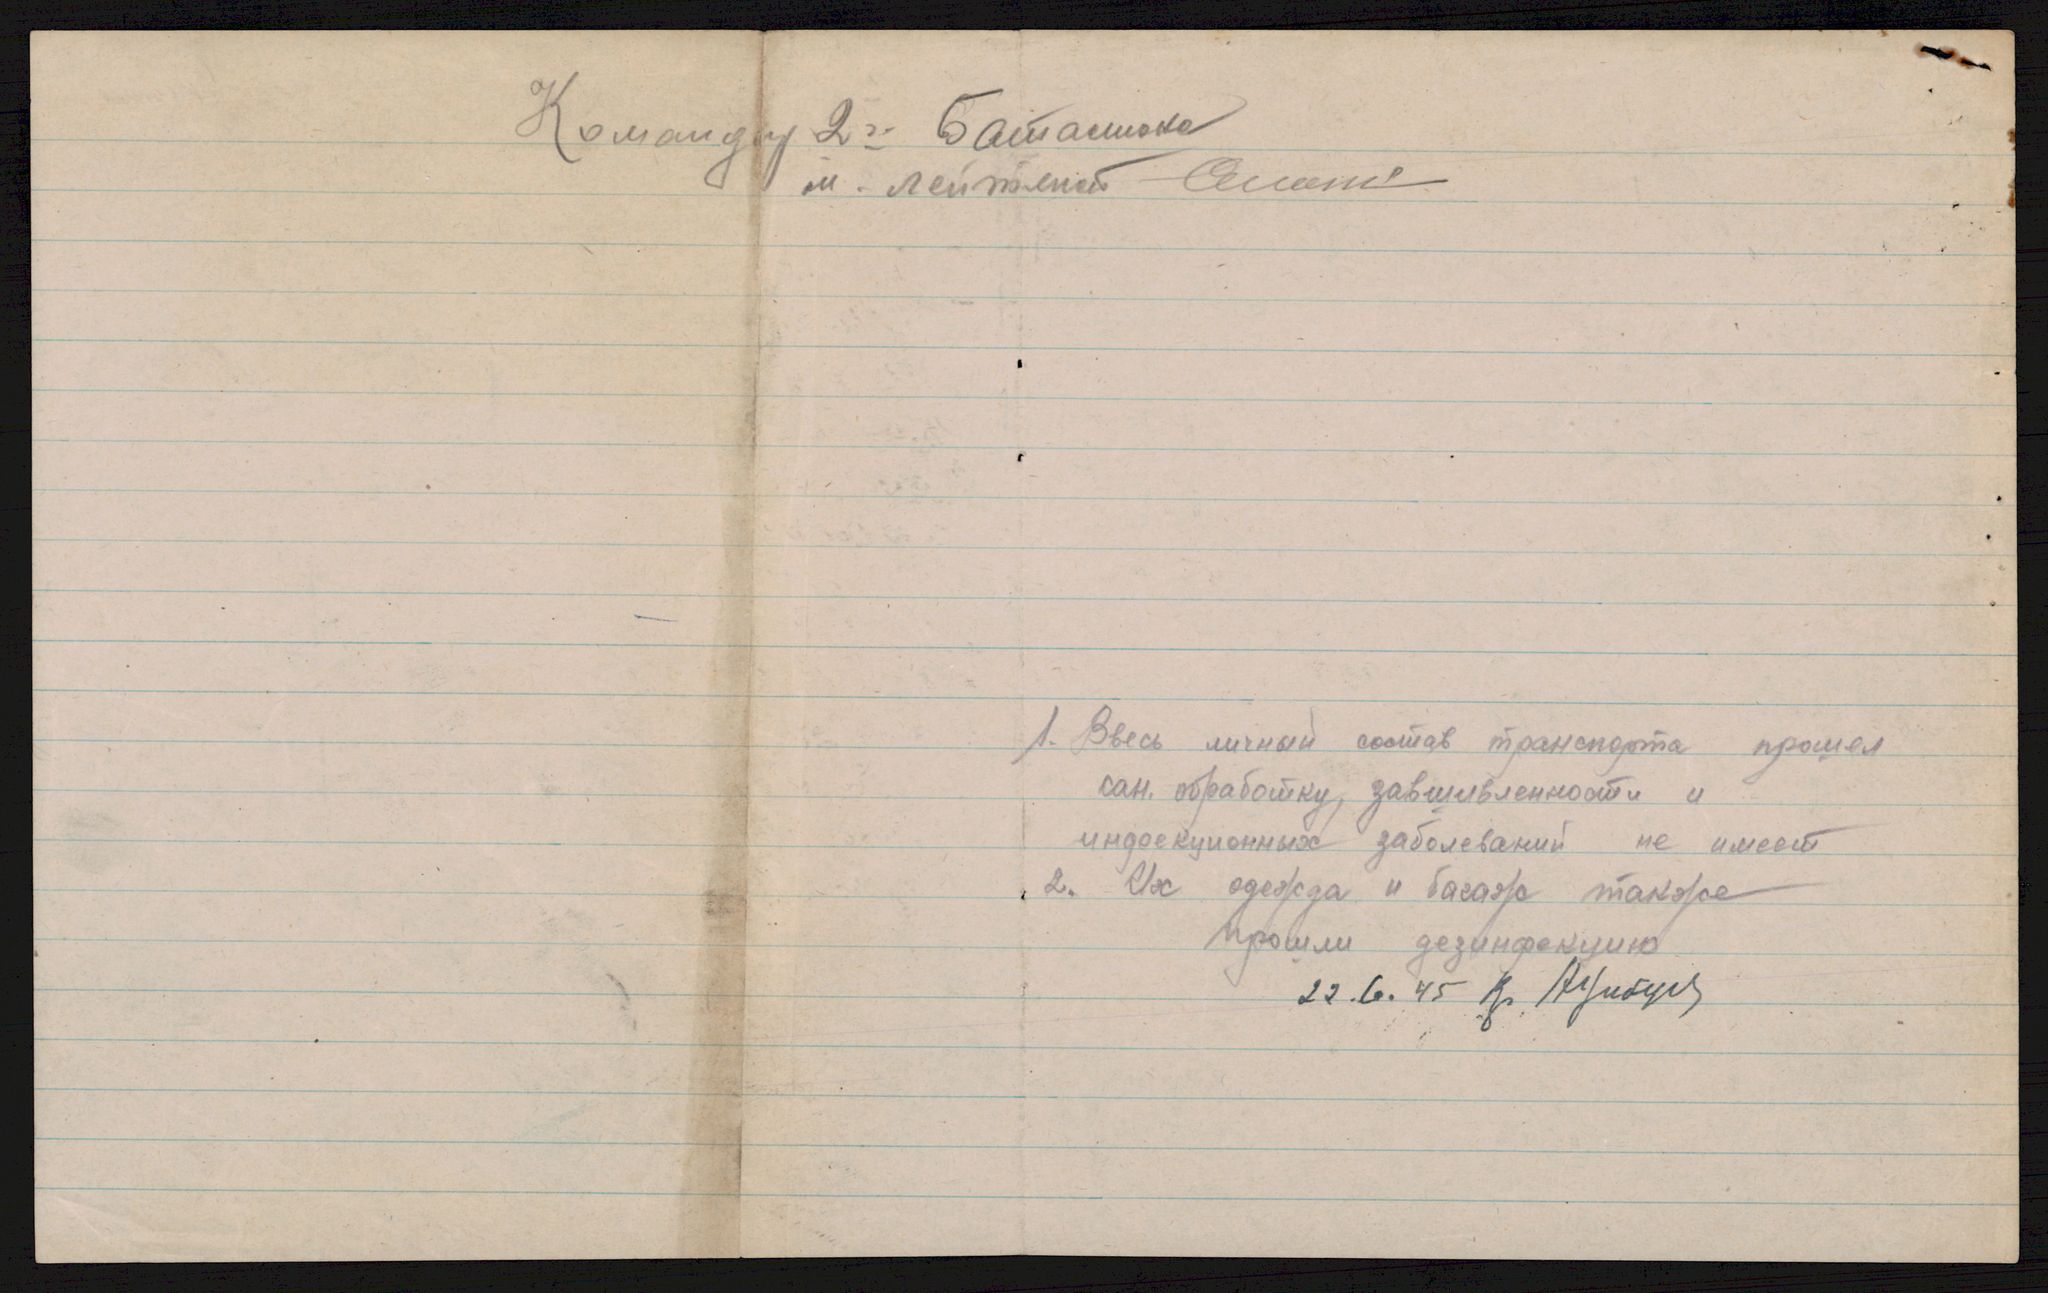 Команду 2го Баталиона
м. лейтенат
1. Ввесь личный состав транспорта прошел
сан. обработку, завшивленности и
индфекционных заболеваний не имеет
2. Их одежда и багаж также
прошли дезинфекцию
22.6.45